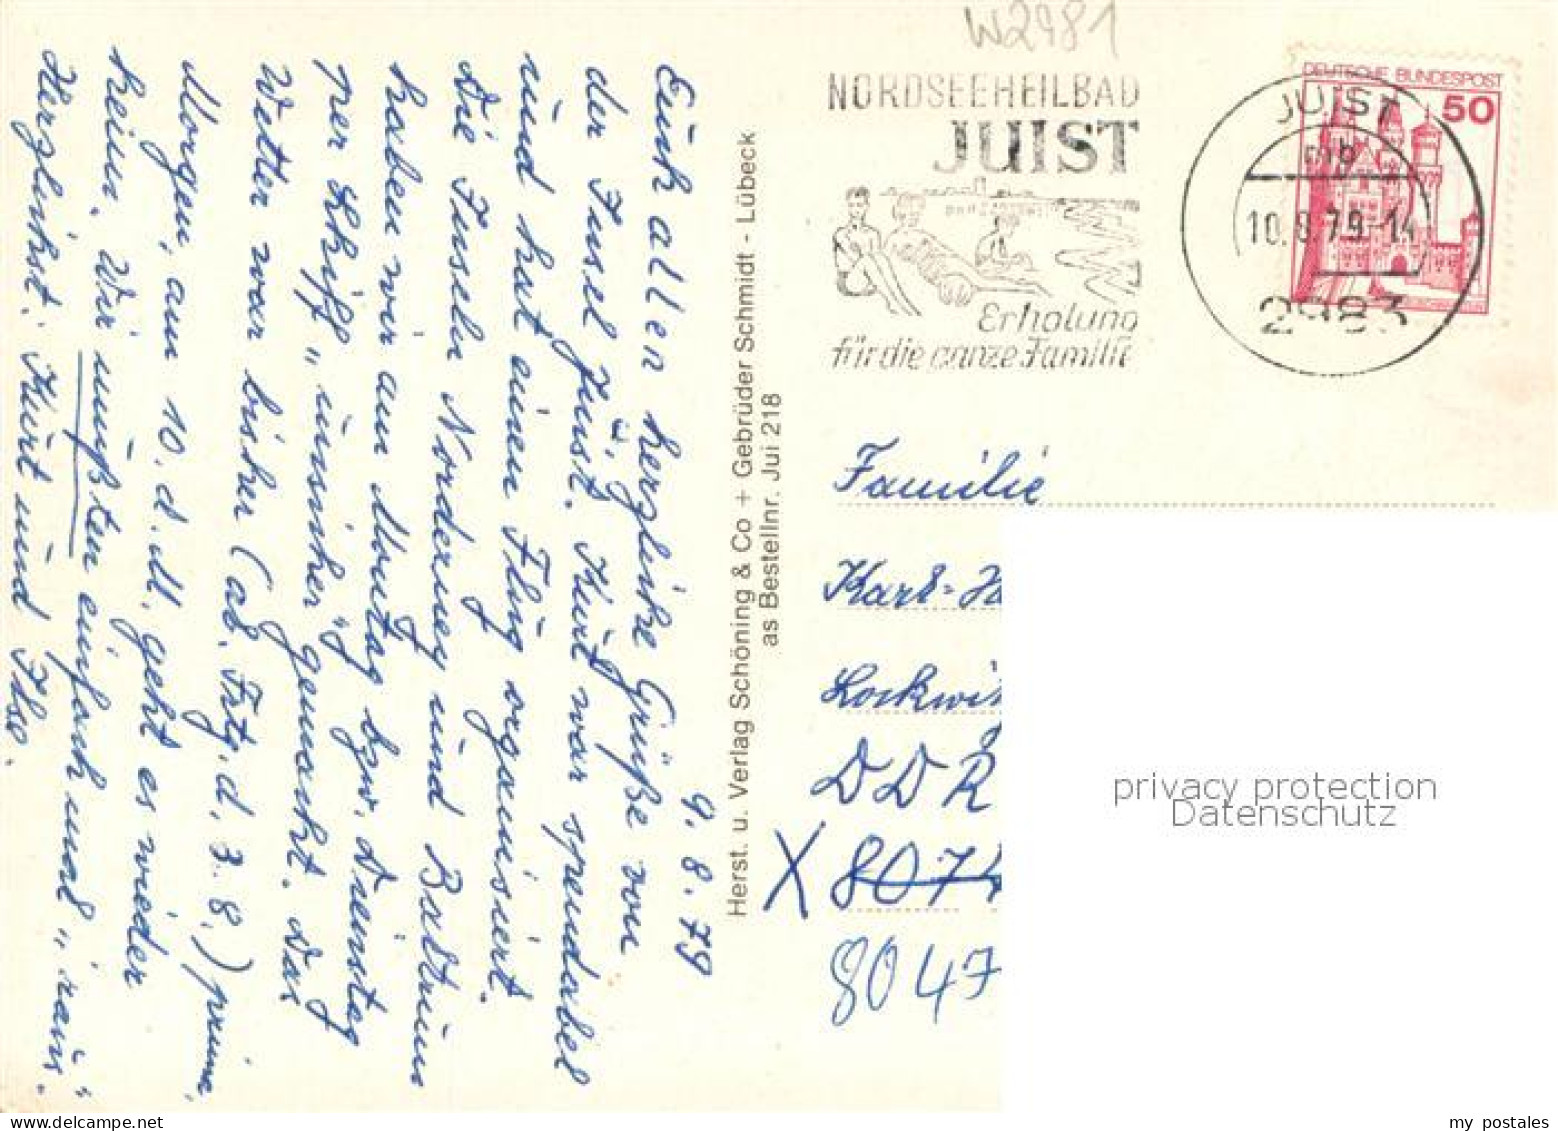 W2981
NORDSEEHEILBAD
JUIST
Erholung
für die ganze Familie
DEUTSCHE BUNDESPOST
50
JUIST
mb
10.8.79-14
2983
9. 8. 79
Euch allen herzliche Grüße von
der Insel Jüist. Kurt war spendabel
und hat einen Flug organisiert.
Die Inseln Norderney und Baltrum
haben wir am Montag bzw. Dienstag
per Schiff „unsicher" gemacht. Das
Wetter war bisher (ab. Frtg. d. 3.8.) prima.
Morgen, am 10. d. M. geht es wieder
heim. Wir mußten einfach mal „raus".
Herzlichst: Kurt und Ilse.
Herst. u. Verlag Schöning & Co + Gebrüder Schmidt - Lübeck
as Bestellnr. Jui 218
Familie
Karl-H
Lockwi
DDR
X 807
8047
privacy protection
Datenschutz
my postales